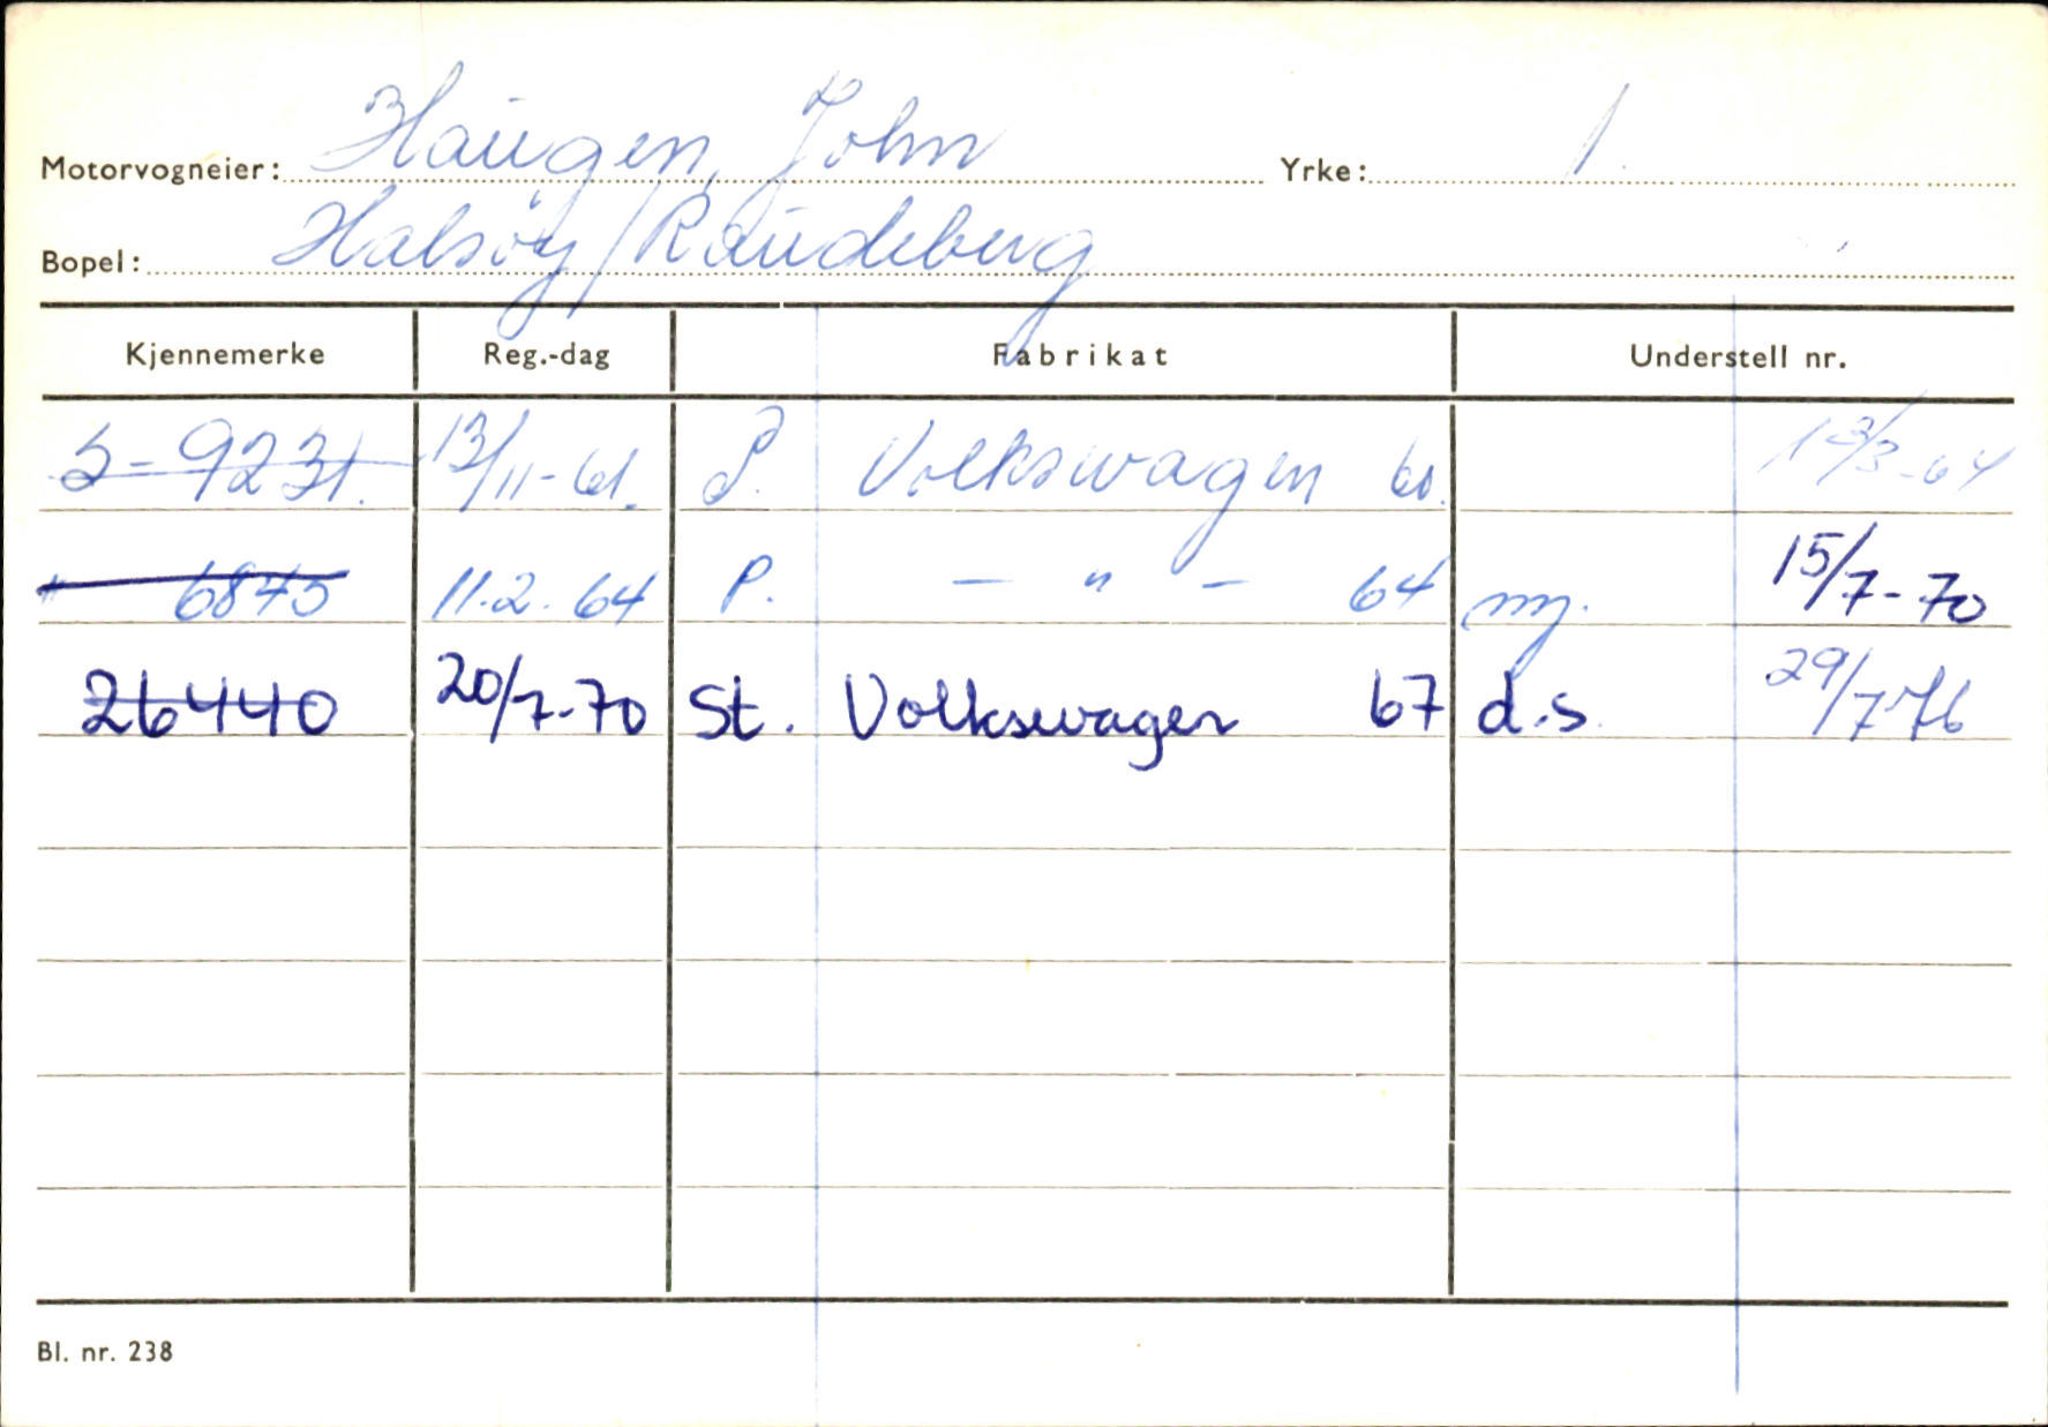 Motorvogneier: Haugen, John Yrke: 1.
Bopel: Halsöy/Raudeberg
Kjennemerke Reg.-dag Fabrikat Understell nr.
S-9231. 13/11-61. P. Volkswagen 60. 13/3-64
" 6845 11.2.64 P. — " — 64 ny. 15/7-70
26440 20/7-70 St. Volkswagen 67 d.s. 29/7-76
Bl. nr. 238